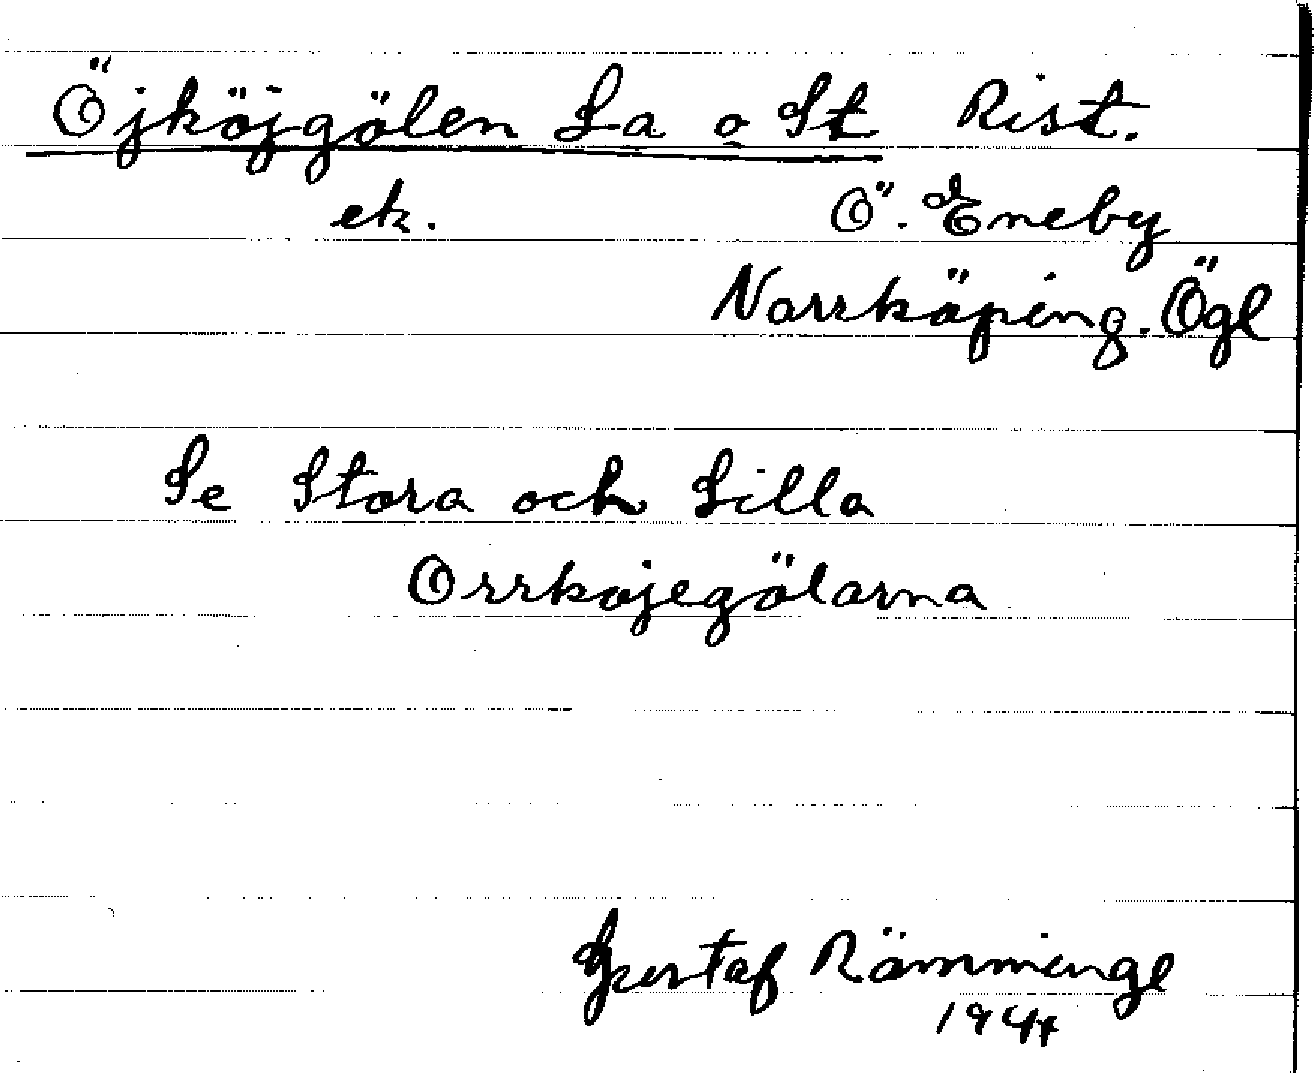 Öjköjgölen La o St Rist.
ek. Ö. Eneby
Norrköping. Ögl
Se Stora och Lilla
Orrkojegölarna
Gustaf Rämminge
1944